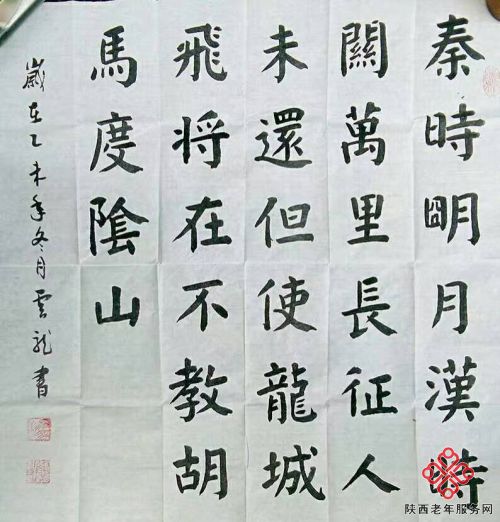 秦時明月漢時
關萬里長征人
未還但使龍城
飛将在不教胡
馬度陰山
歲在乙未年冬月雲龍書
陕西老年服务网